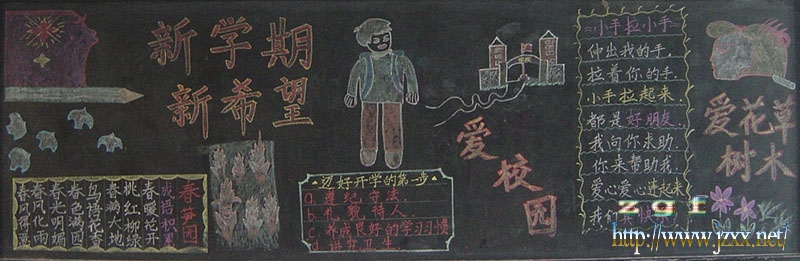 新学期
新希望
成语积累
春暖花开
桃红柳绿
春满大地
鸟语花香
春色满园
春光明媚
春风化雨
春风得意
迈好开学的第一步
a. 遵纪、守法.
b. 礼貌、待人.
c. 养成良好的学习习惯
d. 讲究卫生.
爱校园
小手拉小手
伸出我的手,
拉着你的手.
小手拉起来,
都是好朋友.
我向你求助,
你来帮助我.
爱心爱心连起来
我们
爱花草
树木
zgf
http://www.jzxx.net/